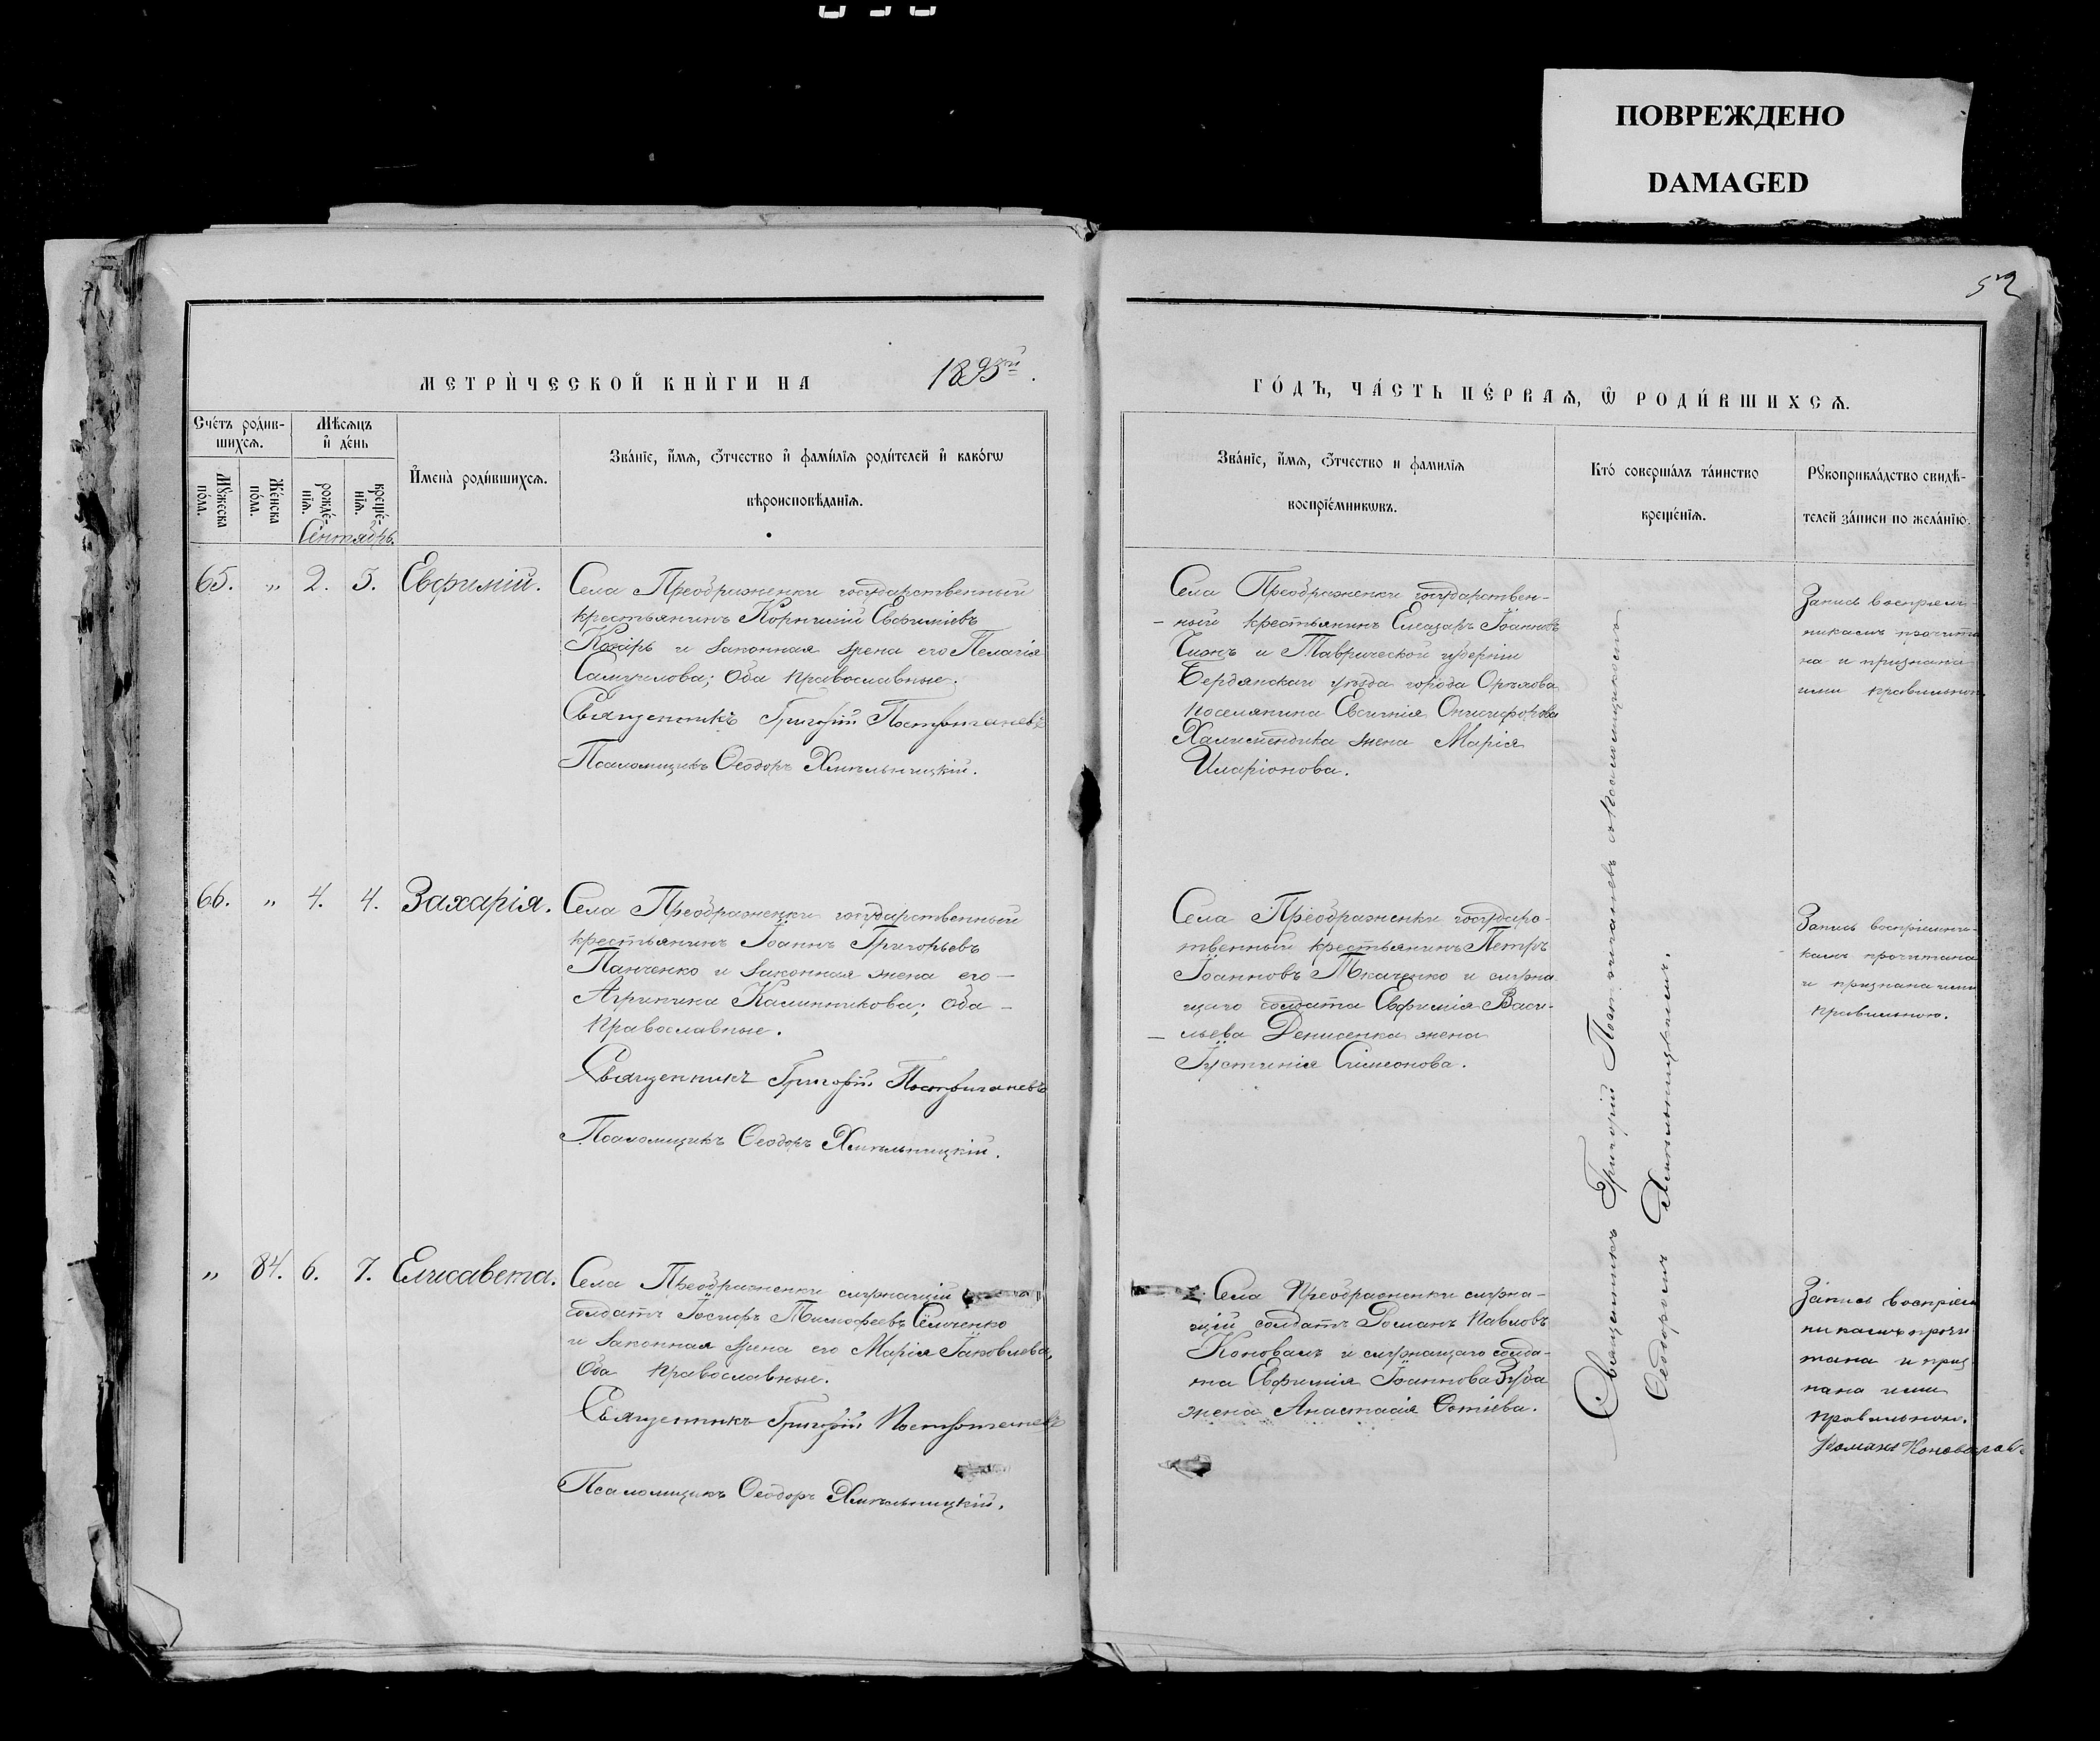 ПОВРЕЖДЕНО
DAMAGED
52
МЕТРИЧЕСКОЙ КНИГИ НА 1893й.
ГОДЪ, ЧАСТЬ ПЕРВАЯ, Ѡ РОДИВШИХСЯ.
Счетъ родив-
шихся.
Мѣсяцъ
и день
Мужеска пола.
Женска пола.
рожде-
нія.
креще-
нія.
Сентябрь.
Имена родившихся.
Званіе, имя, отчество и фамилія родителей и какогѡ
вѣроисповѣданія.
Званіе, имя, отчество и фамилія
воспріемниковъ.
Кто совершалъ таинство
крещенія.
Рукоприкладство свидѣ-
телей записи по желанію.
65. " 2. 5. Евфимій.
Села Преображенки государственный
крестьянинъ Корнилій Евфиміевъ
и законная жена его Пелагія
Самуилова; Оба православные.
Священникъ Григорій
Псаломщикъ Ѳеодоръ Хмѣльницкій.
Села Преображенки государствен-
ный крестьянинъ Елеазаръ Іоанновъ
и Таврической губерніи
Бердянскаго уѣзда города Орѣхова
поселянина Онисифорова
жена Марія
Иларіонова.
Запись воспріем-
никамъ прочита
на и признана
ими правильною
66. " 4. 4. Захарія.
Села Преображенки государственный
крестьянинъ Іоаннъ Григорьевъ
Панченко и законная жена его
Агрипина Калинникова; Оба
православные.
Священникъ Григорій
Псаломщикъ Ѳеодоръ Хмѣльницкій.
Села Преображенки государс-
твенный крестьянинъ Петръ
Іоанновъ Ткаченко и служа
щаго солдата Евфимія Васи-
льева Денисенка жена
Іустинія Симеонова.
Запись воспріемни-
камъ прочитана
и признана ими
правильною.
" 84. 6. 7. Елисавета.
Села Преображенки служащій
солдатъ Іосифъ Тимофеевъ Семченко
и законная жена его Марія Іаковлева,
Оба православные.
Священникъ Григорій
Псаломщикъ Ѳеодоръ Хмѣльницкій.
Села Преображенки служа-
щій солдатъ Романъ Павловъ
Коновалъ и служащаго солда-
та Евфимія Іоаннова Зуба
жена Анастасія Фотіева.
Запись воспріем
никамъ прочи
тана и приз
нана ими
правильною.
Романъ
Священникъ Григорій съ псаломщикомъ
Ѳеодоромъ Хмѣльницкимъ.